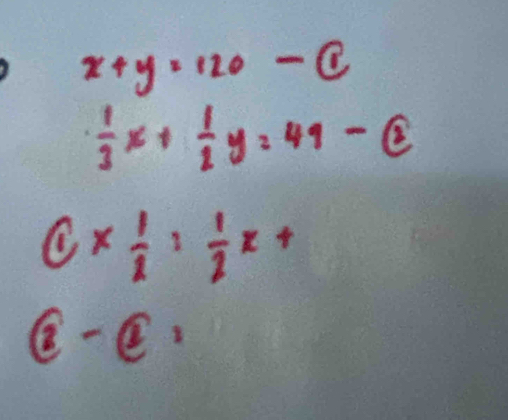 x + y = 120 - ①
1/3 x + 1/2 y = 49 - ②
① × 1/2 : 1/2 x +
② - ② :